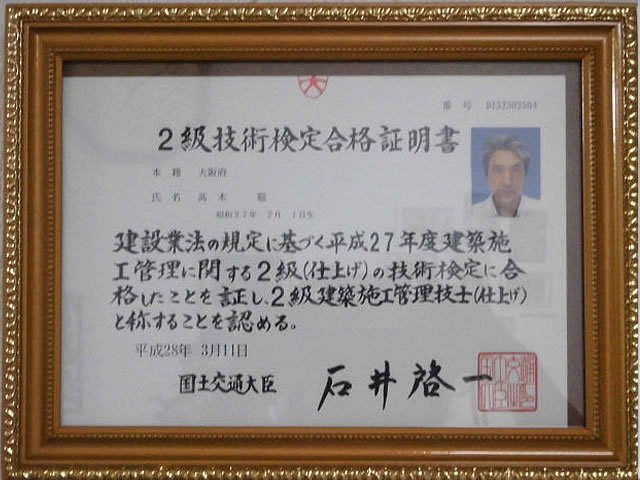 番号 B152302504
2級技術検定合格証明書
本籍 大阪府
氏名 髙木 聡
昭和37年 2月 1日生
建設業法の規定に基づく平成27年度建築施
工管理に関する2級(仕上げ)の技術検定に合
格したことを証し、2級建築施工管理技士(仕上げ)
と称することを認める。
平成28年 3月11日
国土交通大臣 石井啓一